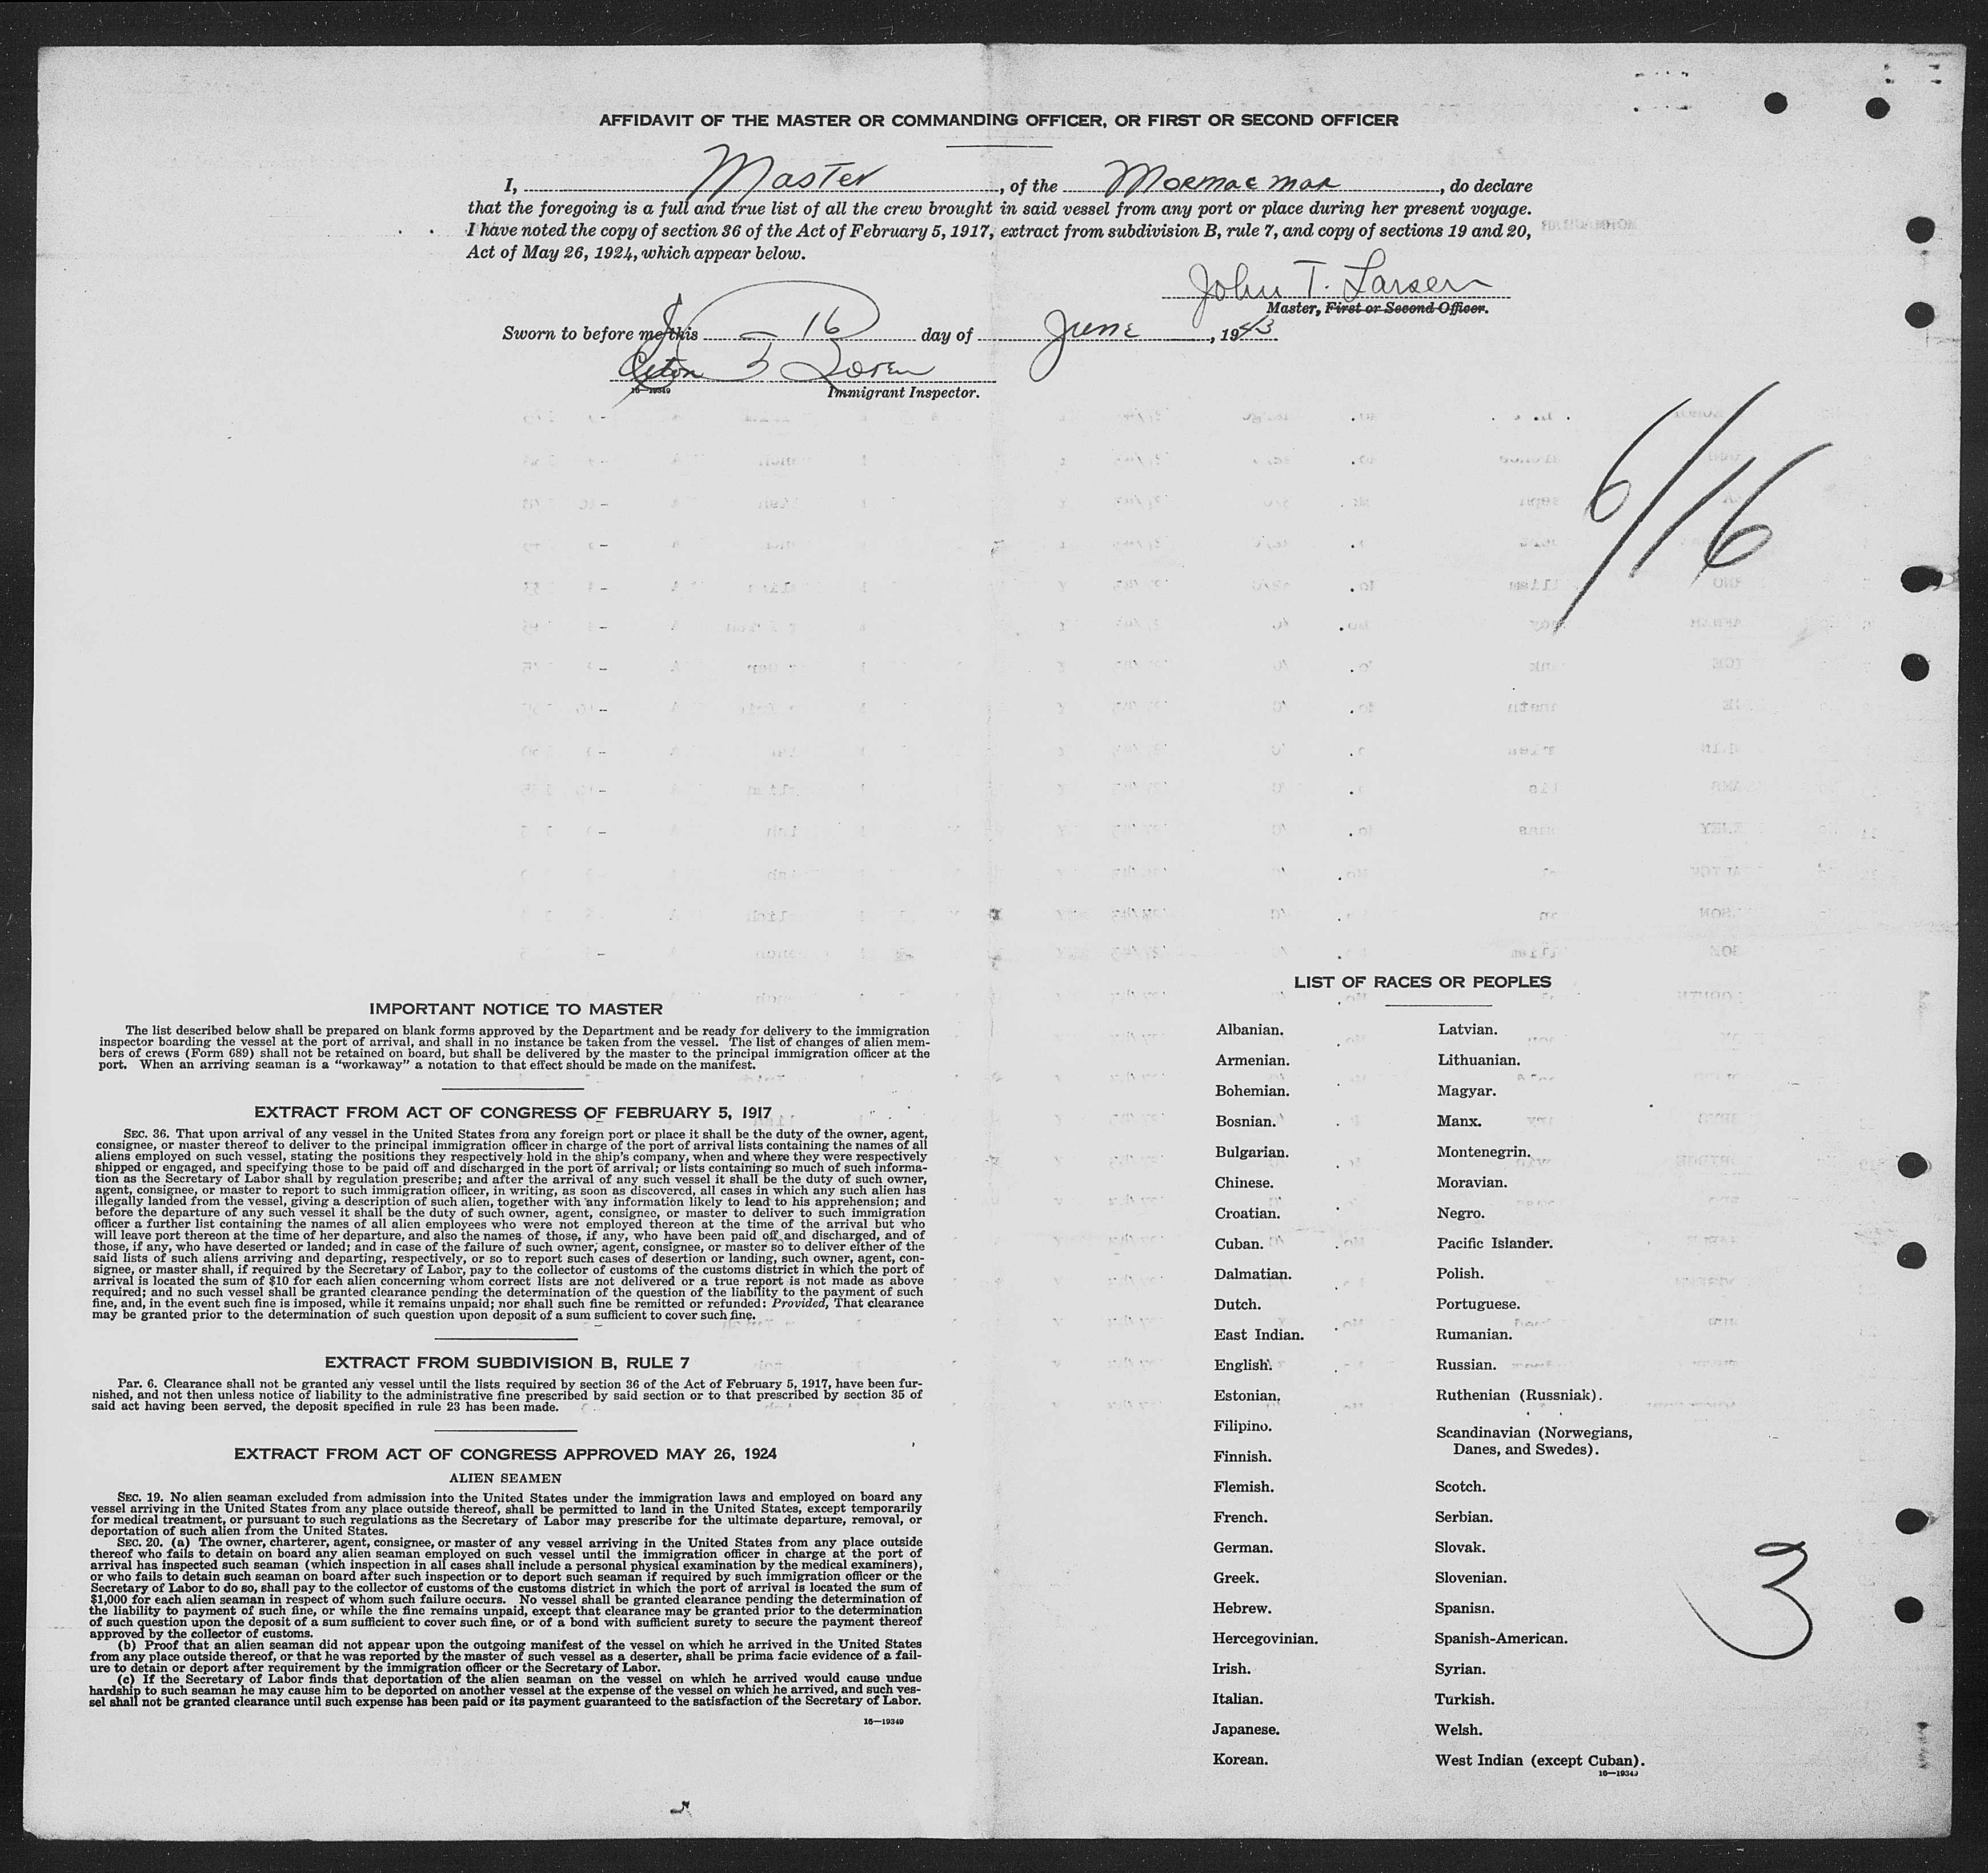 AFFIDAVIT OF THE MASTER OR COMMANDING OFFICER, OR FIRST OR SECOND OFFICER
I, Master, of the Mormacmar, do declare
that the foregoing is a full and true list of all the crew brought in said vessel from any port or place during her present voyage.
I have noted the copy of section 36 of the Act of February 5, 1917, extract from subdivision B, rule 7, and copy of sections 19 and 20,
Act of May 26, 1924, which appear below.
John T. Larsen
Master, First or Second Officer.
Sworn to before me this 16 day of June, 1943
Immigrant Inspector.
16—19349
6/16
IMPORTANT NOTICE TO MASTER
The list described below shall be prepared on blank forms approved by the Department and be ready for delivery to the immigration
inspector boarding the vessel at the port of arrival, and shall in no instance be taken from the vessel. The list of changes of alien mem-
bers of crews (Form 689) shall not be retained on board, but shall be delivered by the master to the principal immigration officer at the
port. When an arriving seaman is a "workaway" a notation to that effect should be made on the manifest.
EXTRACT FROM ACT OF CONGRESS OF FEBRUARY 5, 1917
SEC. 36. That upon arrival of any vessel in the United States from any foreign port or place it shall be the duty of the owner, agent,
consignee, or master thereof to deliver to the principal immigration officer in charge of the port of arrival lists containing the names of all
aliens employed on such vessel, stating the positions they respectively hold in the ship's company, when and where they were respectively
shipped or engaged, and specifying those to be paid off and discharged in the port of arrival; or lists containing so much of such informa-
tion as the Secretary of Labor shall by regulation prescribe; and after the arrival of any such vessel it shall be the duty of such owner,
agent, consignee, or master to report to such immigration officer, in writing, as soon as discovered, all cases in which any such alien has
illegally landed from the vessel, giving a description of such alien, together with any information likely to lead to his apprehension; and
before the departure of any such vessel it shall be the duty of such owner, agent, consignee, or master to deliver to such immigration
officer a further list containing the names of all alien employees who were not employed thereon at the time of the arrival but who
will leave port thereon at the time of her departure, and also the names of those, if any, who have been paid off and discharged, and of
those, if any, who have deserted or landed; and in case of the failure of such owner, agent, consignee, or master so to deliver either of the
said lists of such aliens arriving and departing, respectively, or so to report such cases of desertion or landing, such owner, agent, con-
signee, or master shall, if required by the Secretary of Labor, pay to the collector of customs of the customs district in which the port of
arrival is located the sum of $10 for each alien concerning whom correct lists are not delivered or a true report is not made as above
required; and no such vessel shall be granted clearance pending the determination of the question of the liability to the payment of such
fine, and, in the event such fine is imposed, while it remains unpaid; nor shall such fine be remitted or refunded: Provided, That clearance
may be granted prior to the determination of such question upon deposit of a sum sufficient to cover such fine.
EXTRACT FROM SUBDIVISION B, RULE 7
Par. 6. Clearance shall not be granted any vessel until the lists required by section 36 of the Act of February 5, 1917, have been fur-
nished, and not then unless notice of liability to the administrative fine prescribed by said section or to that prescribed by section 35 of
said act having been served, the deposit specified in rule 23 has been made.
EXTRACT FROM ACT OF CONGRESS APPROVED MAY 26, 1924
ALIEN SEAMEN
SEC. 19. No alien seaman excluded from admission into the United States under the immigration laws and employed on board any
vessel arriving in the United States from any place outside thereof, shall be permitted to land in the United States, except temporarily
for medical treatment, or pursuant to such regulations as the Secretary of Labor may prescribe for the ultimate departure, removal, or
deportation of such alien from the United States.
SEC. 20. (a) The owner, charterer, agent, consignee, or master of any vessel arriving in the United States from any place outside
thereof who fails to detain on board any alien seaman employed on such vessel until the immigration officer in charge at the port of
arrival has inspected such seaman (which inspection in all cases shall include a personal physical examination by the medical examiners),
or who fails to detain such seaman on board after such inspection or to deport such seaman if required by such immigration officer or the
Secretary of Labor to do so, shall pay to the collector of customs of the customs district in which the port of arrival is located the sum of
$1,000 for each alien seaman in respect of whom such failure occurs. No vessel shall be granted clearance pending the determination of
the liability to payment of such fine, or while the fine remains unpaid, except that clearance may be granted prior to the determination
of such question upon the deposit of a sum sufficient to cover such fine, or of a bond with sufficient surety to secure the payment thereof
approved by the collector of customs.
(b) Proof that an alien seaman did not appear upon the outgoing manifest of the vessel on which he arrived in the United States
from any place outside thereof, or that he was reported by the master of such vessel as a deserter, shall be prima facie evidence of a fail-
ure to detain or deport after requirement by the immigration officer or the Secretary of Labor.
(c) If the Secretary of Labor finds that deportation of the alien seaman on the vessel on which he arrived would cause undue
hardship to such seaman he may cause him to be deported on another vessel at the expense of the vessel on which he arrived, and such ves-
sel shall not be granted clearance until such expense has been paid or its payment guaranteed to the satisfaction of the Secretary of Labor.
16—19349
LIST OF RACES OR PEOPLES
Albanian.
Armenian.
Bohemian.
Bosnian.
Bulgarian.
Chinese.
Croatian.
Cuban.
Dalmatian.
Dutch.
East Indian.
English.
Estonian.
Filipino.
Finnish.
Flemish.
French.
German.
Greek.
Hebrew.
Hercegovinian.
Irish.
Italian.
Japanese.
Korean.
Latvian.
Lithuanian.
Magyar.
Manx.
Montenegrin.
Moravian.
Negro.
Pacific Islander.
Polish.
Portuguese.
Rumanian.
Russian.
Ruthenian (Russniak).
Scandinavian (Norwegians,
Danes, and Swedes).
Scotch.
Serbian.
Slovak.
Slovenian.
Spanish.
Spanish-American.
Syrian.
Turkish.
Welsh.
West Indian (except Cuban).
16—19349
3